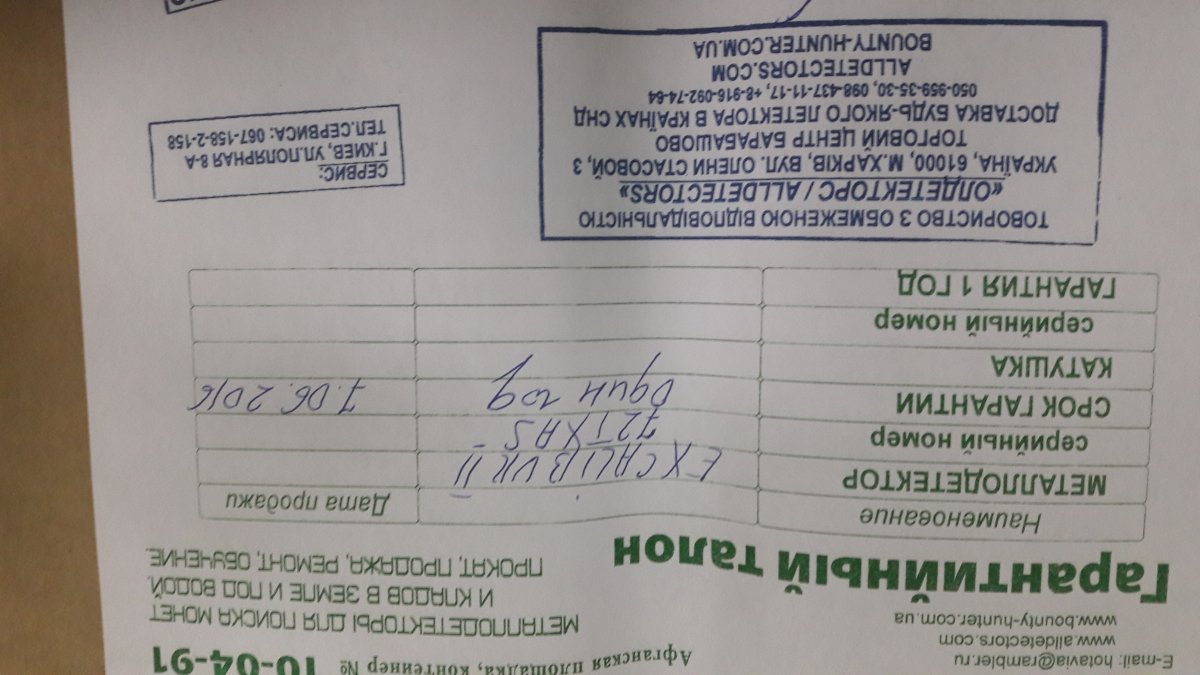 Афганская площадка, контейнер № 10-04-91
E-mail: hotavia@rambler.ru
www.alldetectors.com
www.bounty-hunter.com.ua
МЕТАЛЛОДЕТЕКТОРЫ ДЛЯ ПОИСКА МОНЕТ
И КЛАДОВ В ЗЕМЛЕ И ПОД ВОДОЙ.
ПРОКАТ, ПРОДАЖА, РЕМОНТ, ОБУЧЕНИЕ.
Гарантийный талон
Наименование Дата продажи
МЕТАЛЛОДЕТЕКТОР EXCALIBUR II
серийный номер 72TXAS
СРОК ГАРАНТИИ Один год 7.06.2016
КАТУШКА
серийный номер
ГАРАНТИЯ 1 ГОД
ТОВОРИСТВО З ОБМЕЖЕНОЮ ВІДПОВІДАЛЬНІСТЮ
«ОЛДЕТЕКТОРС / ALLDETECTORS»
УКРАЇНА, 61000, М.ХАРКІВ, ВУЛ. ОЛЕНИ СТАСОВОЙ, 3
ТОРГОВИЙ ЦЕНТР БАРАБАШОВО
ДОСТАВКА БУДЬ-ЯКОГО ЛЕТЕКТОРА В КРАЇНАХ СНД
050-959-35-30, 098-437-11-17, +8-916-092-74-64
ALLDETECTORS.COM
BOUNTY-HUNTER.COM.UA
СЕРВИС:
Г.КИЕВ, УЛ.ПОЛЯРНАЯ 8-А
ТЕЛ.СЕРВИСА: 067-158-2-158